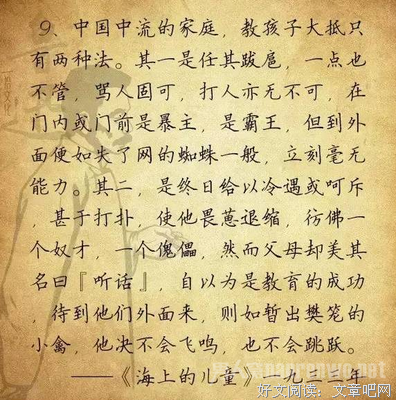 9、中国中流的家庭，教孩子大抵只
有两种法。其一是任其跋扈，一点也
不管，骂人固可，打人亦无不可，在
门内或门前是暴主，是霸王，但到外
面便如失了网的蜘蛛一般，立刻毫无
能力。其二，是终日给以冷遇或呵斥
，甚于打扑，使他畏葸退缩，彷佛一
个奴才，一个傀儡，然而父母却美其
名曰『听话』，自以为是教育的成功
，待到他们外面来，则如暂出樊笼的
小禽，他决不会飞鸣，也不会跳跃。
——《海上的儿童》一九三三年
好文阅读：文章吧网